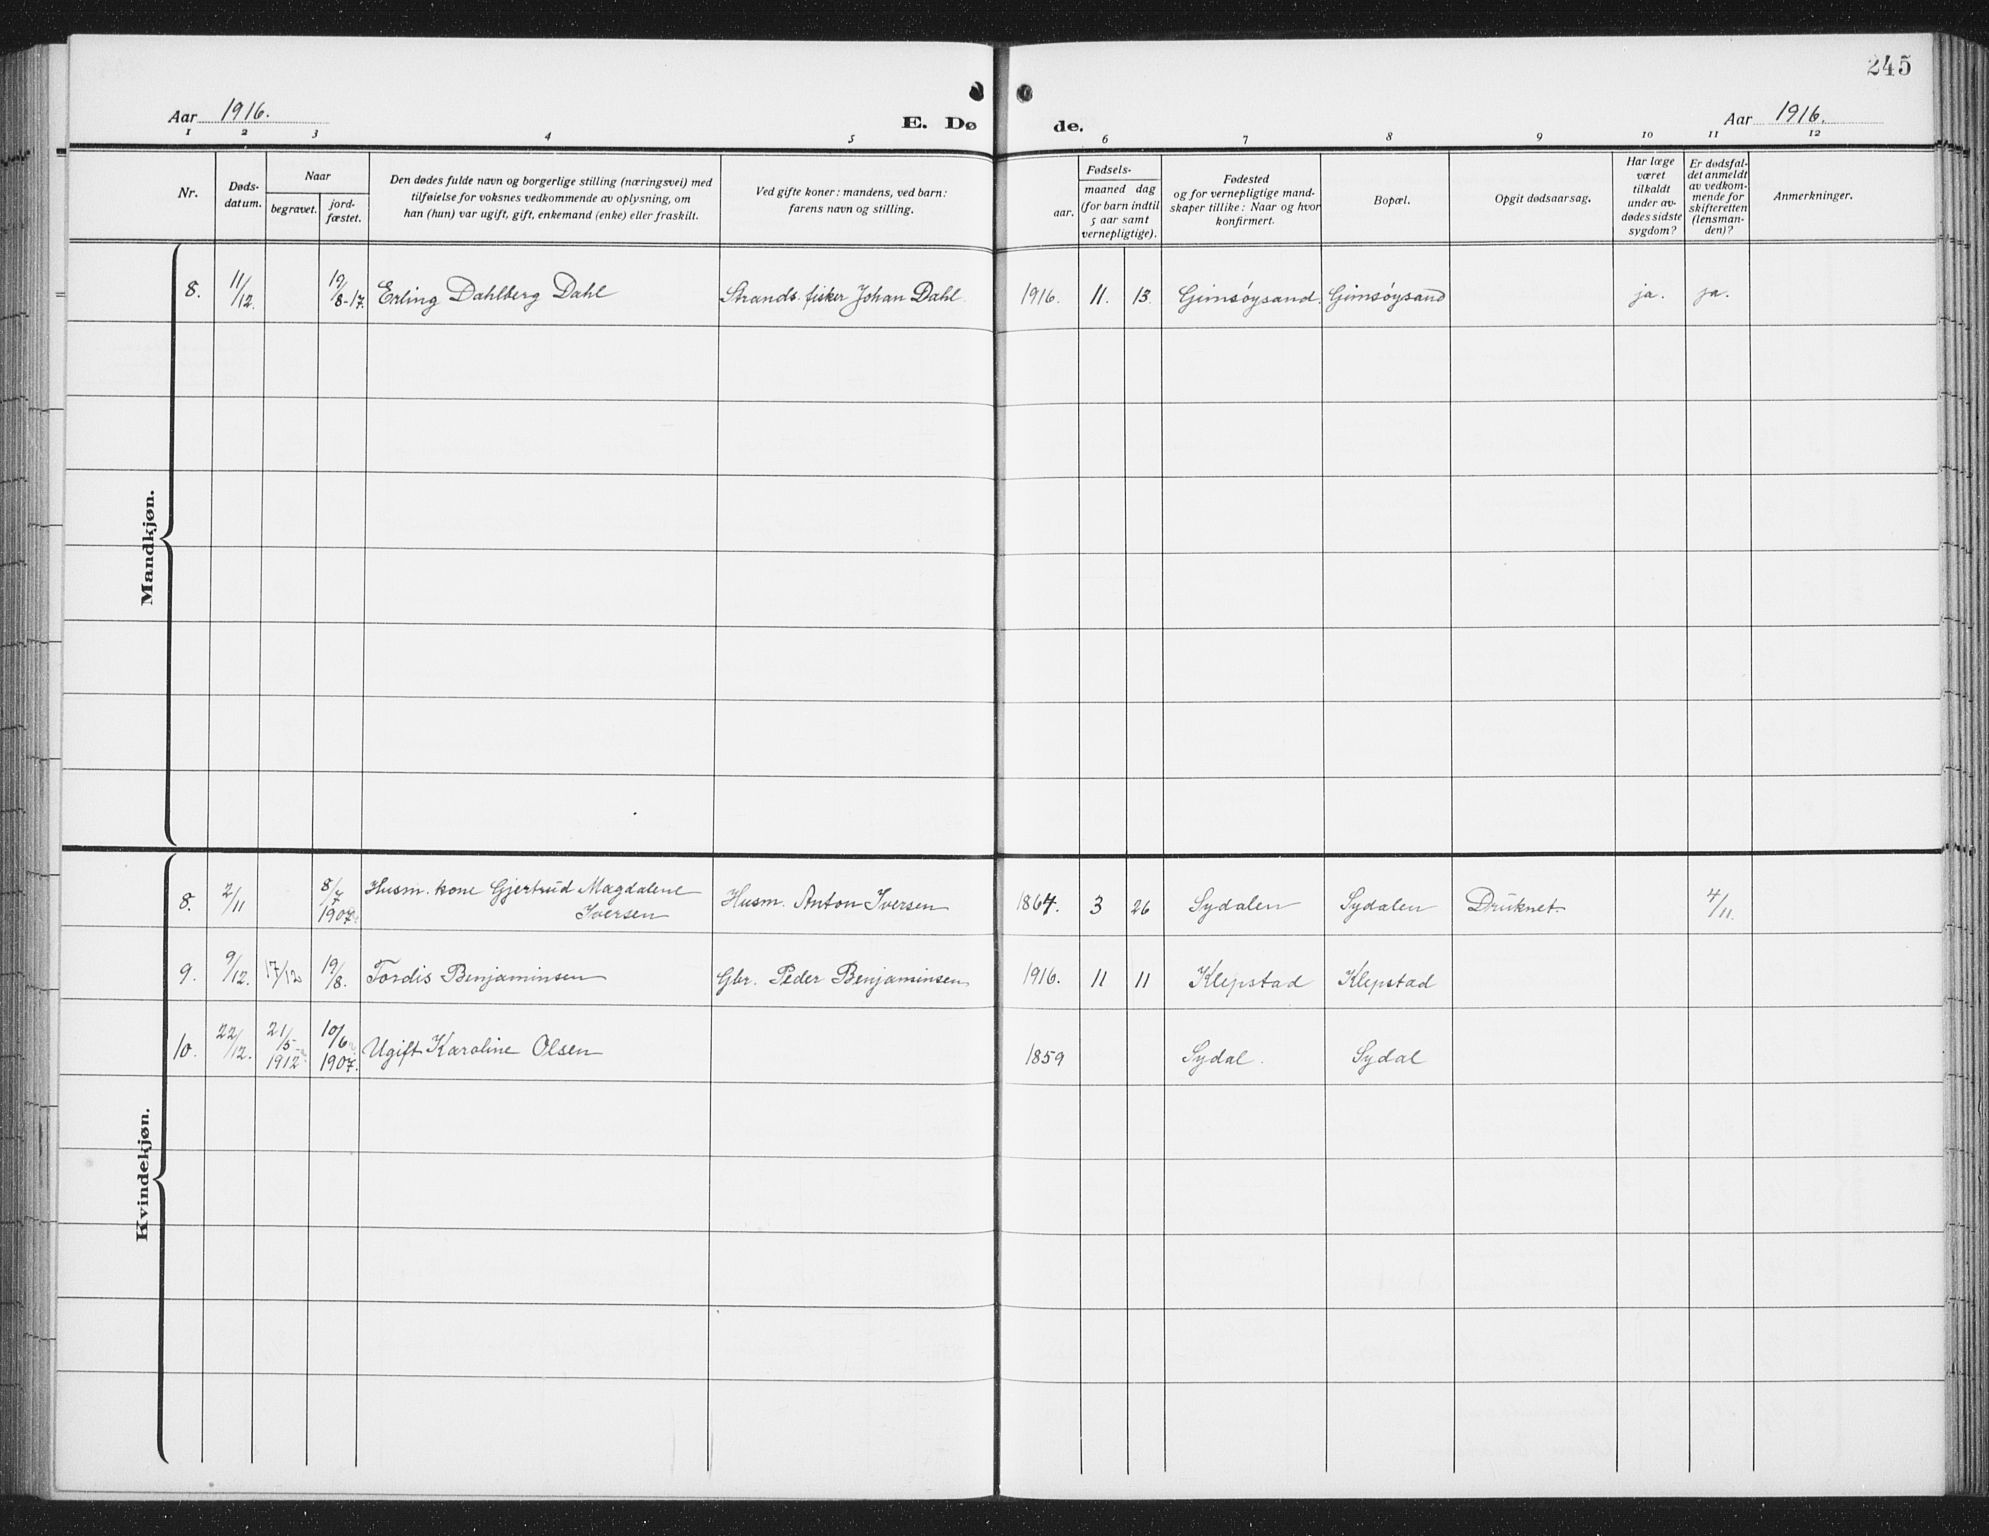 245
Aar 1916.
E. Dø
de.
Aar 1916.
1 2 3 4 5 6 7 8 9 10 11 12
Nr.
Døds-
datum.
Naar
begravet.
jord-
fæstet.
Den dødes fulde navn og borgerlige stilling (næringsvei) med
tilføielse for voksnes vedkommende av oplysning, om
han (hun) var ugift, gift, enkemand (enke) eller fraskilt.
Ved gifte koner: mandens, ved barn:
farens navn og stilling.
Fødsels-
aar.
maaned dag
(for barn indtil
5 aar samt
vernepligtige).
Fødested
og for vernepligtige mand-
skaper tillike: Naar og hvor
konfirmert.
Bopæl.
Opgit dødsaarsag.
Har læge
været
tilkaldt
under av-
dødes sidste
sygdom?
Er dødsfal-
det anmeldt
av vedkom-
mende for
skifteretten
(lensman-
den)?
Anmerkninger.
Mandkjøn.
8. 11/12. 19/8-17. Erling Dahlberg Dahl Strands. fisker Johan Dahl. 1916. 11. 13. Gimsøysand. Gimsøysand ja. ja.
Kvindekjøn.
8. 2/11 8/7 1907. Husm. kone Gjertrud Magdalene
Iversen Husm. Anton Iversen 1864. 3 26 Sydalen Sydalen Druknet. 4/11.
9. 9/12. 17/12 19/8. Tordis Benjaminsen Gbr. Peder Benjaminsen 1916. 11 11 Klepstad Klepstad
10. 22/12. 21/5 1912 10/6 1907. Ugift Karoline Olsen 1859 Sydal. Sydal